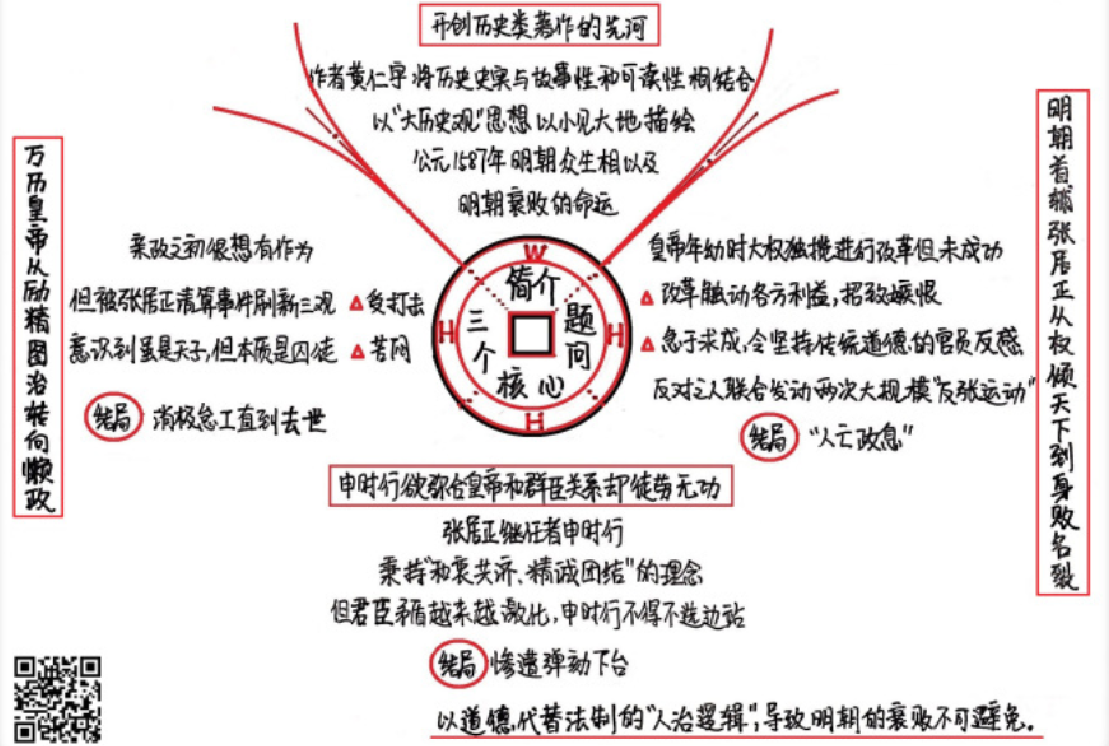 开创历史类著作的先河
作者黄仁宇将历史史实与故事性和可读性相结合
以"大历史观"思想以小见大地描绘
公元1587年明朝众生相以及
明朝衰败的命运
万历皇帝从励精图治转向懒政
亲政之初很想有作为
但被张居正清算事件刷新三观 △受打击
意识到虽是天子,但本质是囚徒 △苦闷
结局 消极怠工直到去世
W
H
H
H
简介
三个核心问题
明朝首辅张居正从权倾天下到身败名裂
皇帝年幼时大权独揽进行改革但未成功
△改革触动各方利益,招致嫉恨
△急于求成,令坚持传统道德的官员反感
反对之人联合发动两次大规模"反张运动"
结局 "人亡政息"
申时行欲弥合皇帝和群臣关系却徒劳无功
张居正继任者申时行
秉持"和衷共济、精诚团结"的理念
但君臣矛盾越来越激化,申时行不得不选边站
结局 惨遭弹劾下台
以道德代替法制的"人治逻辑",导致明朝的衰败不可避免.